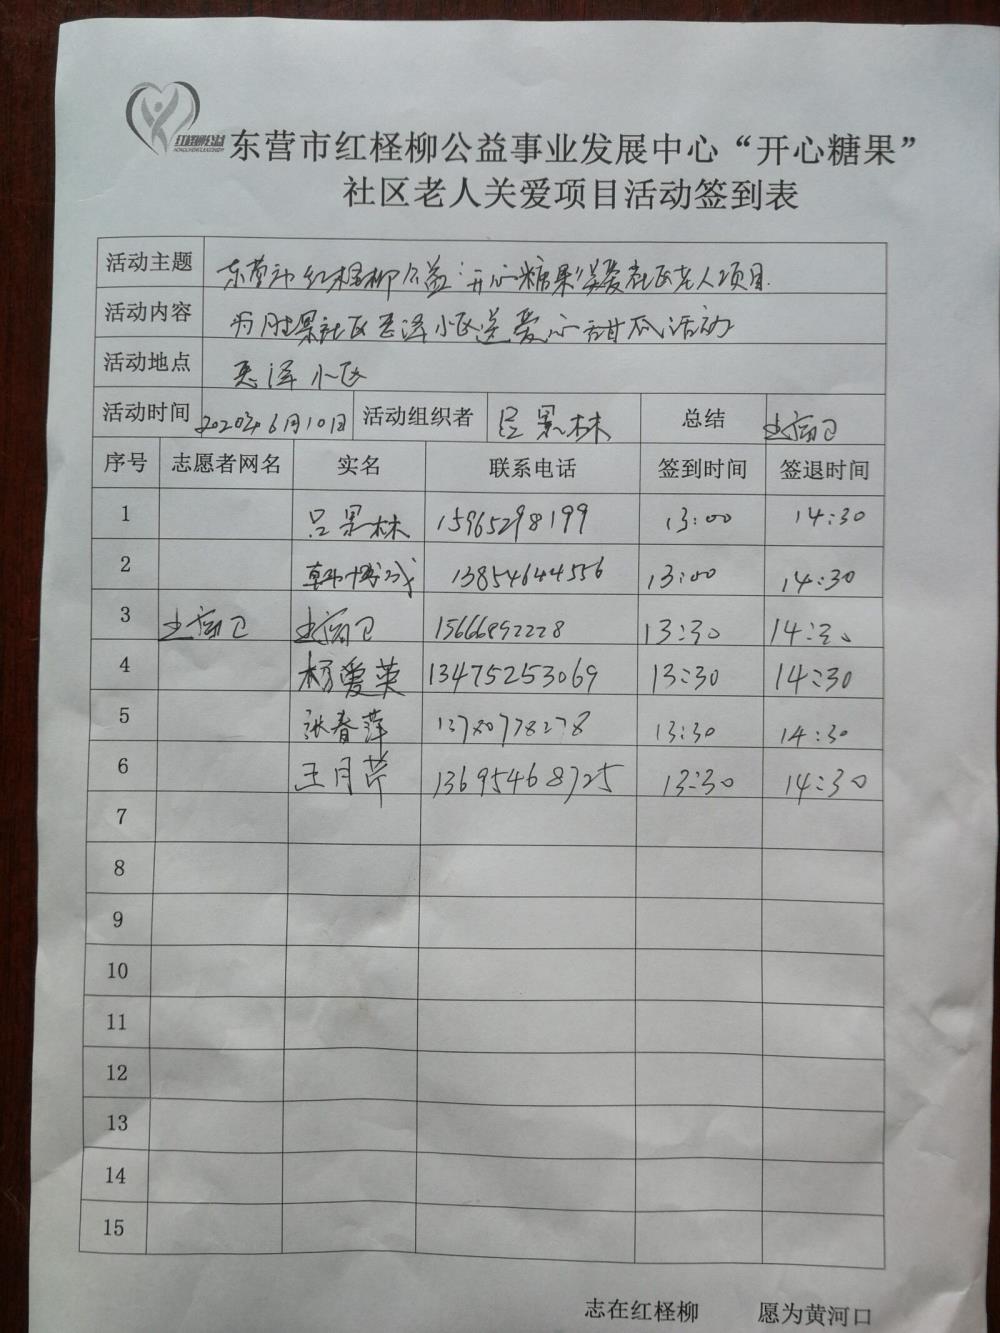 红柽柳公益
东营市红柽柳公益事业发展中心“开心糖果”
社区老人关爱项目活动签到表
活动主题 东营市红柽柳公益“开心糖果”关爱社区老人项目
活动内容 为胜景社区惠泽小区送爱心甜瓜活动
活动地点 惠泽小区
活动时间 2020年6月10日 活动组织者 吕景林 总结
序号 志愿者网名 实名 联系电话 签到时间 签退时间
1 吕景林 15965298199 13:00 14:30
2 13854644556 13:00 14:30
3 15666892228 13:30 14:30
4 杨爱英 13475253069 13:30 14:30
5 张春萍 13780778278 13:30 14:30
6 王月芹 13695468725 13:30 14:30
7
8
9
10
11
12
13
14
15
志在红柽柳 愿为黄河口